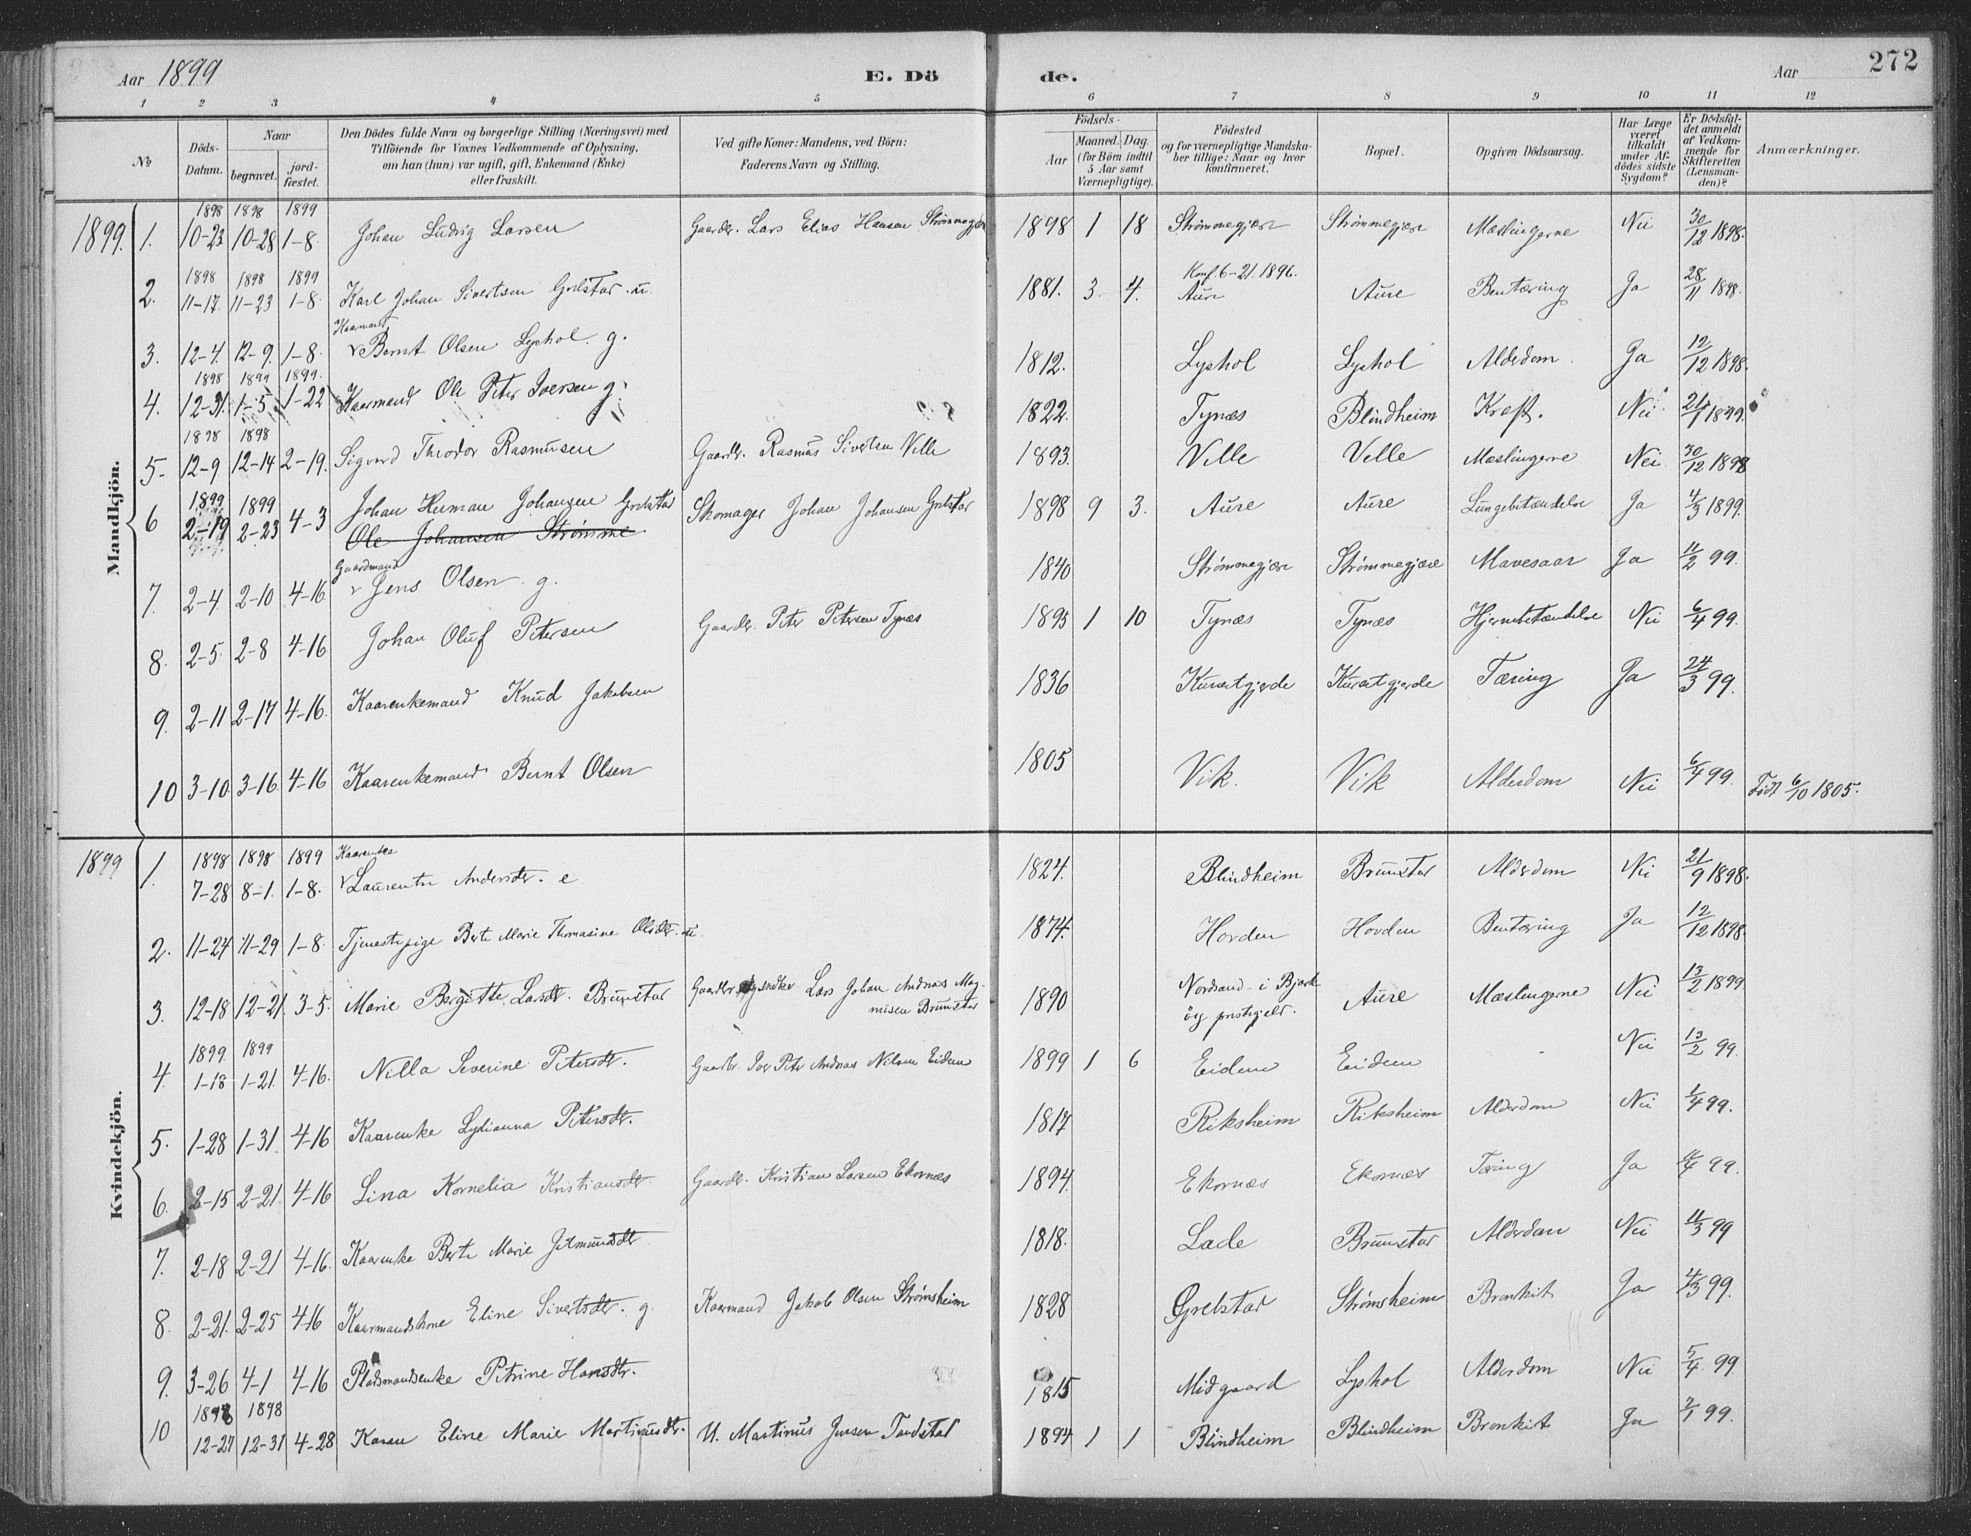 Aar 1899 E. Dö de. Aar 272
1 2 3 4 5 6 7 8 9 10 11 12
№ Döds-Datum. Naar begravet. jord-fæstet. Den Dödes fulde Navn og borgerlige Stilling (Næringsvei) med Tilföiende for Voxnes Vedkommende af Oplysning, om han (hun) var ugift, gift, Enkemand (Enke) eller fraskilt. Ved gifte Koner: Mandens, ved Börn: Faderens Navn og Stilling. Födsels- Aar Maaned. Dag. (for Börn indtil 5 Aar samt Værnepligtige). Födested og for værnepligtige Mandskaber tillige: Naar og hvor konfirmeret. Bopæl. Opgiven Dödsaarsag. Har Læge været tilkaldt under Afdödes sidste Sygdom? Er Dödsfaldet anmeldt af Vedkommende for Skifteretten (Lensmanden)? Anmærkninger.
Mandkjön.
1899. 1. 1898 10-23 1898 10-28 1899 1-8. Johan Ludvig Larsen Gaardbr. Lars Elias Hansen Strømmegjære 1898 1 18 Strømmegjære Strømmegjære Mæslingerne Nei 30/12 1898.
2. 1898 11-17. 1898 11-23 1899 1-8. Karl Johan Sivertsen Grebstad. u. 1881. 3. 4. Konf. 6-21. 1896. Aure Aure Bentæring Ja 28/11 1898.
3. 12-4. 12-9. 1-8. Kaarmand Bernt Olsen Lyshol. g. 1812. Lyshol Lyshol Alderdom. Ja 12/12 1898.
4. 1898 12-31. 1899 1-5. 1899. 1-22 Kaarmand Ole Peter Iversen g. 1822. Tynæs Blindheim Kræft. Nei 1899.
5. 1898 12-9 1898 12-14 2-19. Sigvard Theodor Rasmusen Gaardbr. Rasmus Sivertsen Velle 1893. Velle Velle Mæslingerne Nei 30/12 1898
6 1899 2-19 1899 2-23 4-3 Johan Herman Johansen Grebstad Skomager Johan Johansen Grebstad 1898 9 3. Aure Aure Lungebetændelse Ja 4/3 1899.
Ole Johansen Strømme
7. 2-4. 2-10 4-16 Gaardmand Jens Olsen. g. 1840 Strømmegjære Strømmegjære Mavesaar Ja 11/2 99.
8. 2-5. 2-8 4-16 Johan Oluf Petersen Gaardbr. Peter Petersen Tynæs 1895 1 10 Tynæs Tynæs Hjernebetændelse Nei 6/4 99.
9. 2-11 2-17 4-16. Kaarenkemand Knud Jakobsen 1836 Kurset gjerde Kurset gjerde Tæring Ja 24/3 99.
10 3-10. 3-16. 4-16 Kaarenkemand Bernt Olsen 1805 Vik. Vik Alderdom Nei 6/4 99. Födt 6/10 1805.
Kvindekjön.
1899 1. 1898 7-28 1898 8-1. 1899 1-8. Kaarenke Laurentse Andersdtr. e 1824. Blindheim Brunstad Alderdom Nei 21/9 1898.
2. 11-24 11-29 1-8. Tjenestepige Berte Marie Thomasine Olsdtr. u. 1874. Hovden Hovden Bentæring Ja 12/12 1898.
3. 12-18 12-21. 3-5. Marie Bergitte Larsdtr. Brunstad Gaardbr Lars Johan Andreas Mag-nusen Brunstad 1890 Nordsand i Bjark-öy prestgjeld. Aure Mæslingerne Nei 13/2 1899
4. 1899 1-18 1899 1-21. 4-16. Nilla Severine Petersdtr. Gaardbr. Iver Peter Andreas Nilsen Eidem 1899 1 6 Eidem Eidem Nei 13/2 99.
5. 1-28 1-31. 4-16 Kaarenke Lydianna Petersdtr. 1817 Riksheim Riksheim Alderdom Nei 1/4 99.
6. 2-15 2-21. 4-16 Lina Kornelia Kristiansdtr Gaardbr. Kristian Larsen Ekornæs 1894. Ekornæs Ekornæs Tæring Ja 99.
7. 2-18 2-21 4-16. Kaarenke Berte Marie Jetmundsdtr 1818. Lade Brunstad Alderdom Nei 11/3 99
8. 2-21. 2-25 4-16 Kaarmandskone Eline Sivertsdtr. g. Kaarmand Jakob Olsen Strømsheim 1828 Grebstad Strømsheim Bronkit Ja 4/3 99.
9. 3-26 4-1 4-16 Pladsmandsenke Petrine Hansdtr. 1815 Midgaard Lyshol Alderdom Nei 5/4. 99.
10 1898 12-27 1898 12-31 4-28 Karen Eline Marie Martinusdtr. U. Martinus Jensen Tandstad 1894 1 1 Blindheim Blindheim Bronkit Ja 99.